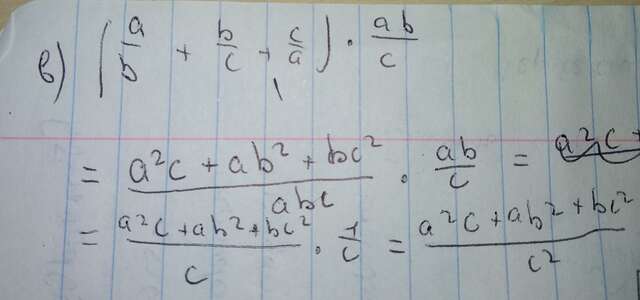 в) (a/b + b/c + c/a) · ab/c
= (a²c + ab² + bc²)/abc · ab/c = a²c +
= (a²c + ab² + bc²)/c · 1/c = (a²c + ab² + bc²)/c²